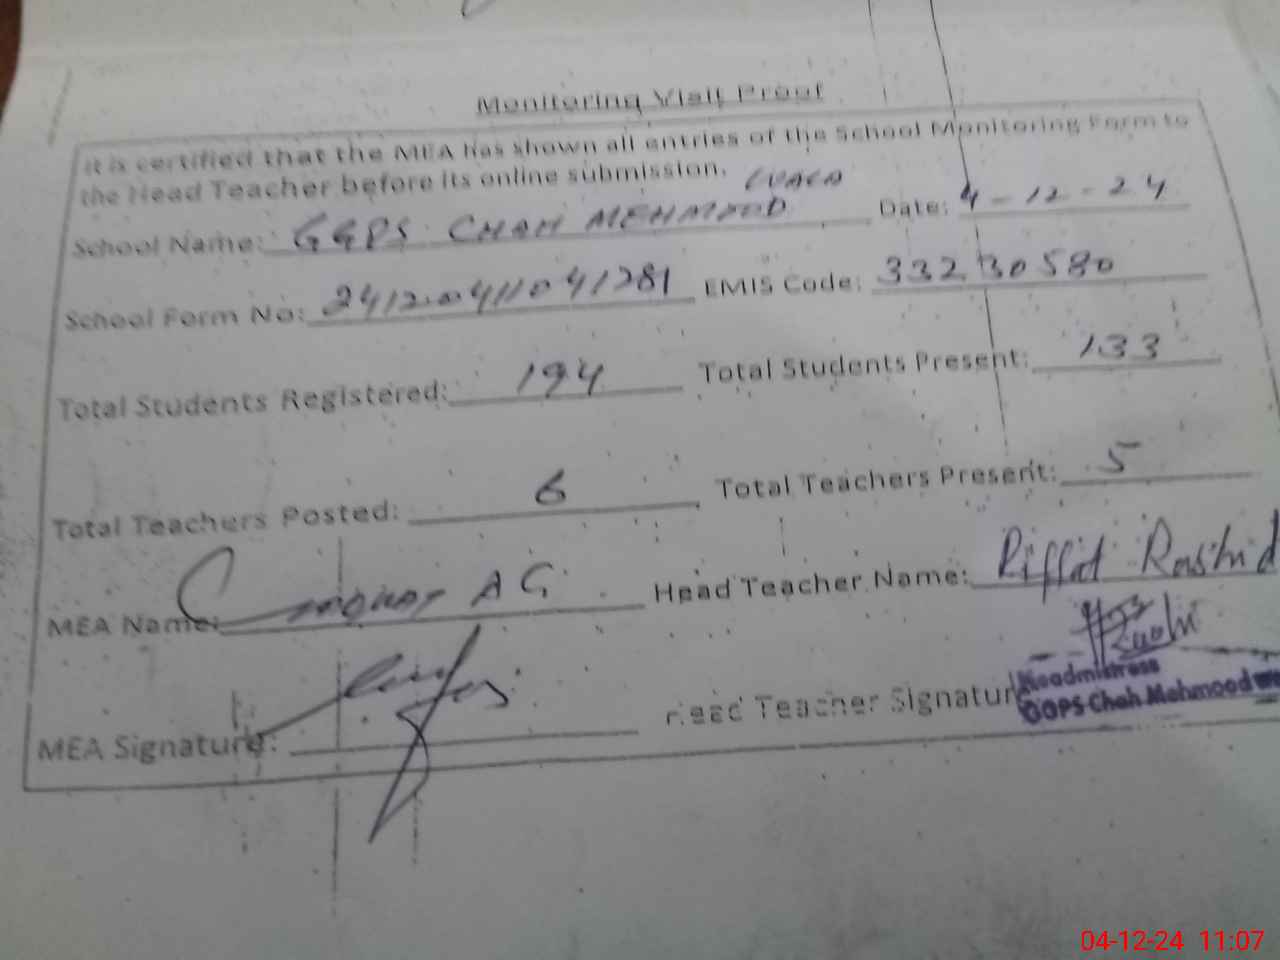 Monitoring Visit Proof
It is certified that the MEA has shown all entries of the School Monitoring Form to
the Head Teacher before its online submission.
School Name: GGPS CHAH MEHMOOD WALA Date: 4-12-24
School Form No: 2412.0411041281 EMIS Code: 33230580
Total Students Registered: 194 Total Students Present: 133
Total Teachers Posted: 6 Total Teachers Present: 5
MEA Name: Head Teacher Name: Riffat Rashid
MEA Signature: Head Teacher Signature
Headmistress
GGPS Chah Mehmood
04-12-24 11:07